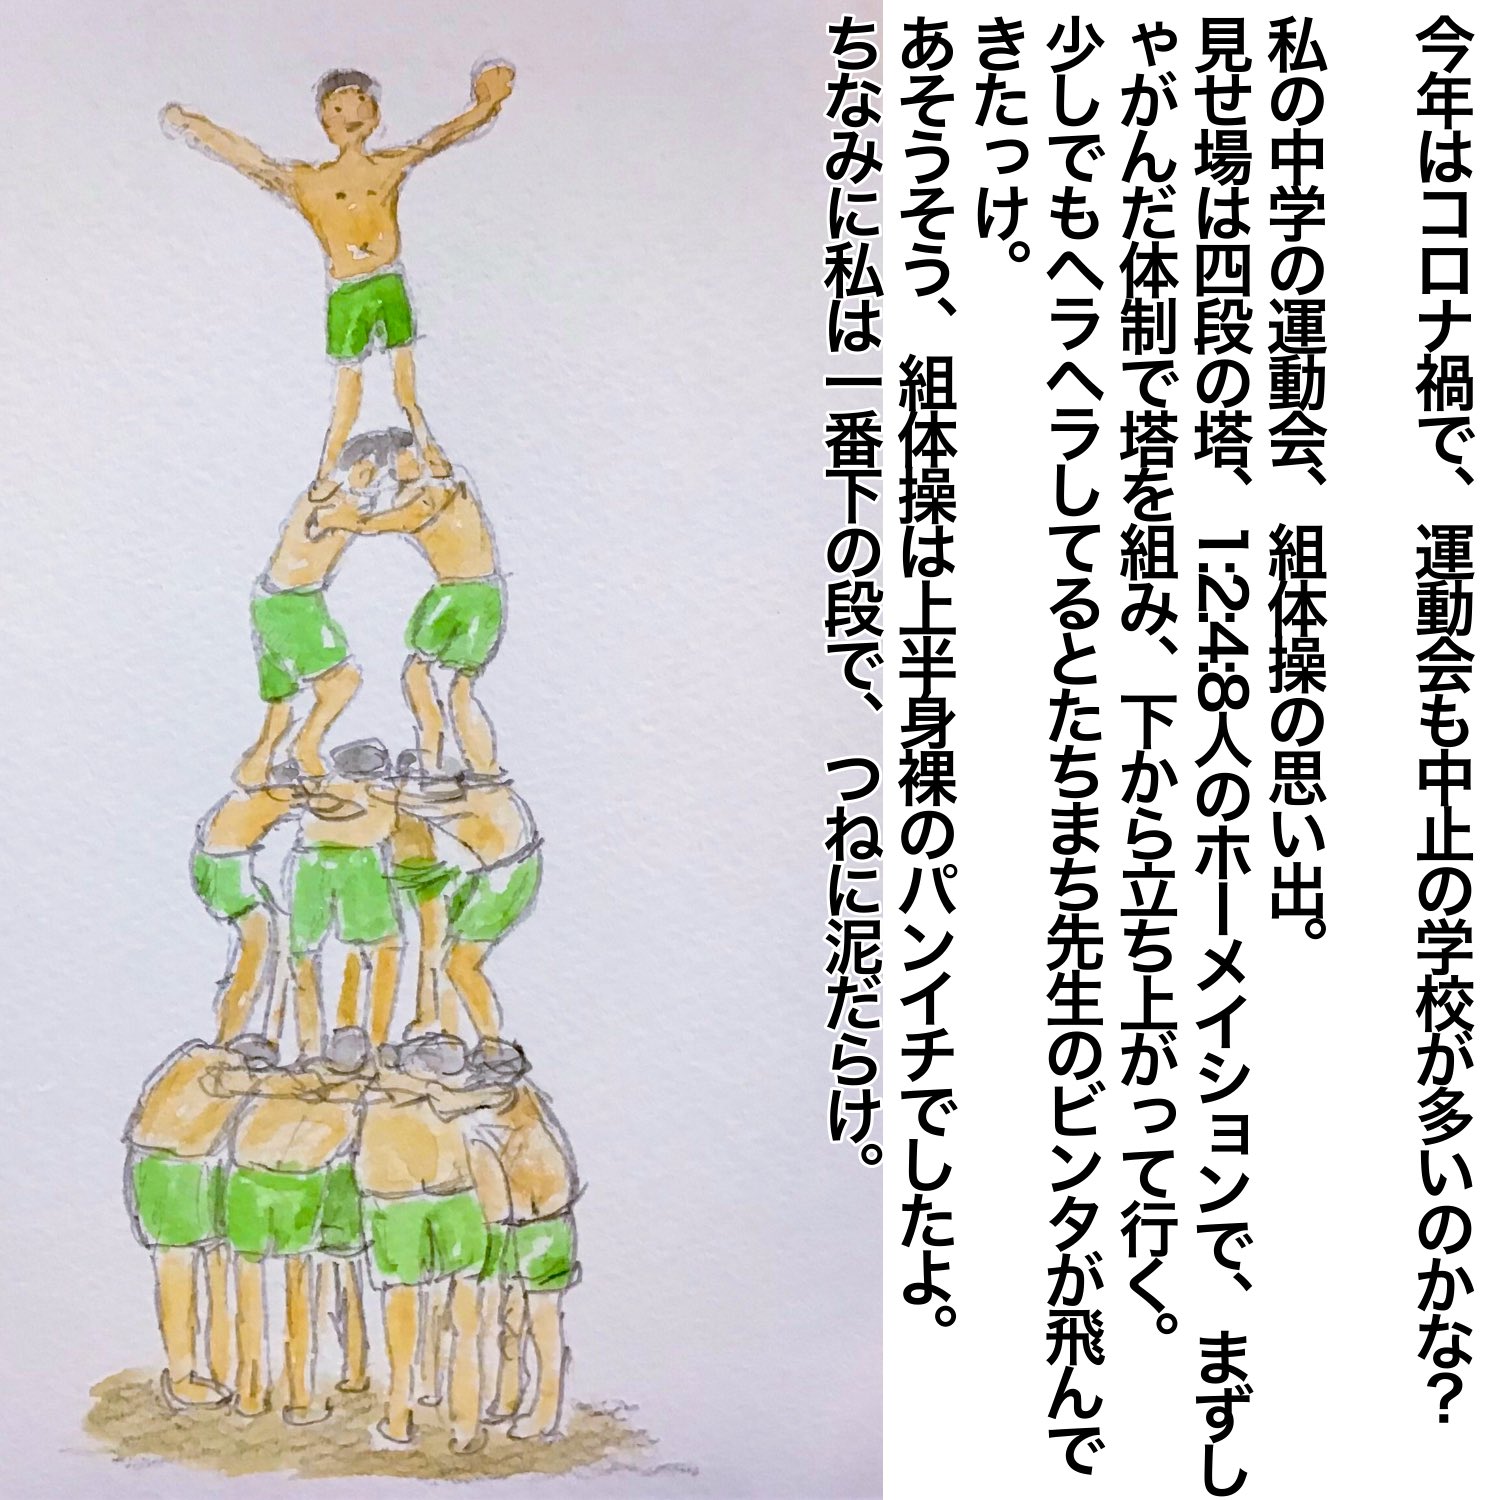 今年はコロナ禍で、運動会も中止の学校が多いのかな？
私の中学の運動会、組体操の思い出。
見せ場は四段の塔、1:2:4:8人のホーメイションで、まずし
ゃがんだ体制で塔を組み、下から立ち上がって行く。
少しでもヘラヘラしてるとたちまち先生のビンタが飛んで
きたっけ。
あそうそう、組体操は上半身裸のパンイチでしたよ。
ちなみに私は一番下の段で、つねに泥だらけ。